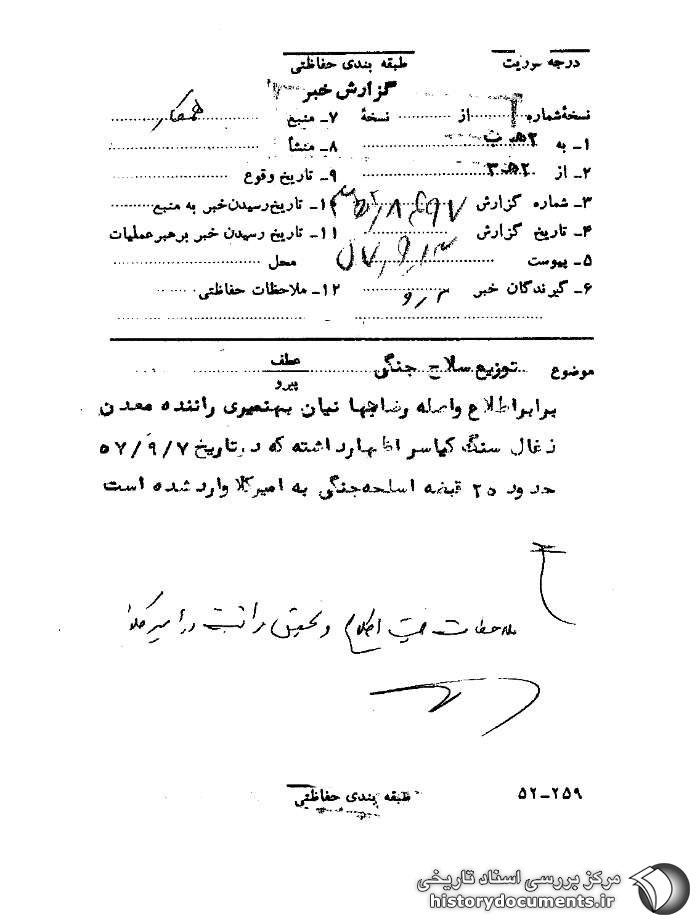 درجه فوریت طبقه بندی حفاظتی
گزارش خبر
نسخهٔ شماره ۱ از نسخهٔ ۷ـ منبع همکار
۱ـ به ۲هـ ب ۸ـ منشأ
۲ـ از ۲هـ۳ ۹ـ تاریخ وقوع
۳ـ شماره گزارش ۱۰ـ تاریخ رسیدن خبر به منبع
۴ـ تاریخ گزارش ۵۷٫۹٫۱۳ ۱۱ـ تاریخ رسیدن خبر برهبر عملیات
۵ـ پیوست محل
۶ـ گیرندگان خبر ۱۲ـ ملاحظات حفاظتی
موضوع توزیع سلاح جنگی عطف
پیرو
برابر اطلاع واصله رضا جهانیان بهنمیری راننده معدن
زغال سنگ کیاسر اظهار داشته که در تاریخ ۵۷/۹/۷
حدود ۲۵ قبضه اسلحه جنگی به امیرکلا وارد شده است
ملاحظات اطلاع و تحقیق مراتب در امیرکلا
طبقه بندی حفاظتی ۲۵۹ـ۵۲
مرکز بررسی اسناد تاریخی
historydocuments.ir